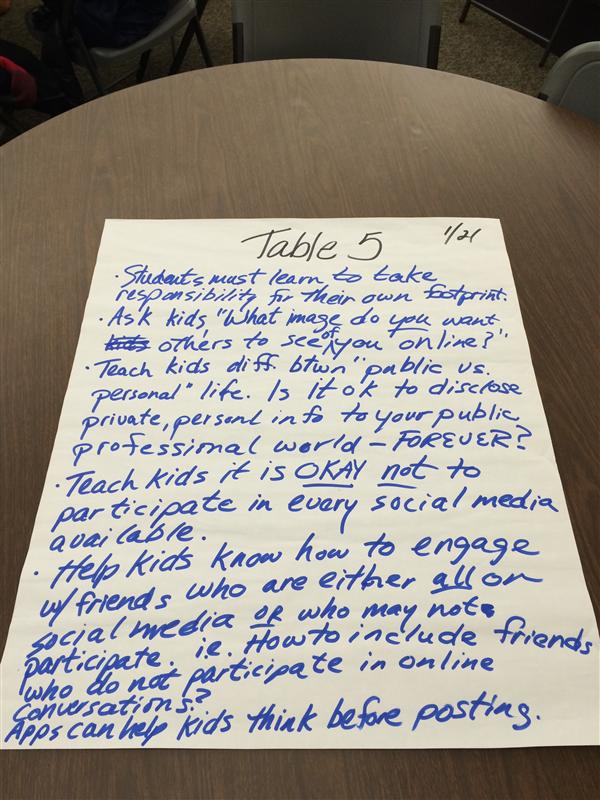 Table 5 1/21
· Students must learn to take
responsibility for their own footprint.
· Ask kids "What image do you want
kids others to see of you online?"
· Teach kids diff. btwn "public vs.
personal" life. Is it ok to disclose
private, personl info to your public
professional world - FOREVER?
· Teach kids it is OKAY not to
participate in every social media
available.
· Help kids know how to engage
w/ friends who are either all on
social media or who may not
participate. ie. How to include friends
who do not participate in online
conversations?
Apps can help kids think before posting.